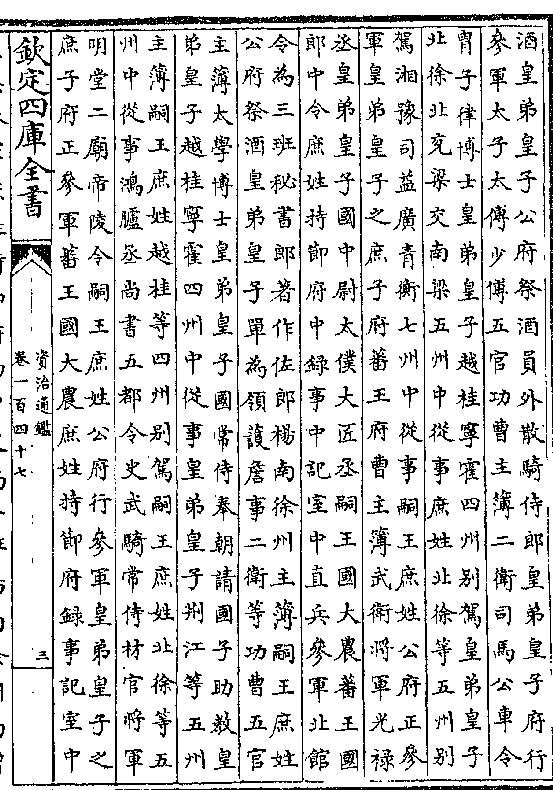 酒皇弟皇子公府祭酒員外散騎侍郎皇弟皇子府行
參軍太子太傅少傅五官功曹主簿二衛司馬公車令
胄子律博士皇弟皇子越桂寧霍四州别駕皇弟皇子
北徐北兖梁交南梁五州中從事庶姓北徐等五州别
駕湘豫司益廣青衡七州中從事嗣王庶姓公府正參
軍皇弟皇子之庶子府蕃王府曹主簿武衛將軍光禄
丞皇弟皇子國中尉太僕大匠丞嗣王國大農蕃王國
郎中令庶姓持節府中録事中記室中直兵參軍北館
令為三班秘書郎著作佐郎楊南徐州主簿嗣王庶姓
公府祭酒皇弟皇子單為領護詹事二衛等功曹五官
主簿太學博士皇弟皇子國常侍奉朝請國子助教皇
弟皇子越桂寧霍四州中從事皇弟皇子荆江等五州
主簿嗣王庶姓越桂等四州别駕嗣王庶姓北徐等五
州中從事鴻臚丞尚書五都令史武騎常侍材官將軍
明堂二廟帝陵令嗣王庶姓公府行參軍皇弟皇子之
庶子府正參軍蕃王國大農庶姓持節府録事記室中
欽定四庫全書
資治通鑑
卷一百四十七
三